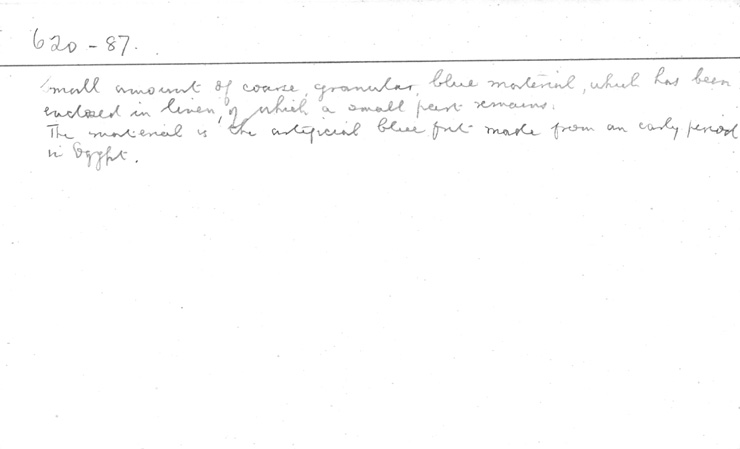 620 - 87.
Small amount of coarse, granular, blue material, which has been
enclosed in linen, of which a small part remains.
The material is the artificial blue frit made from an early period
in Egypt.